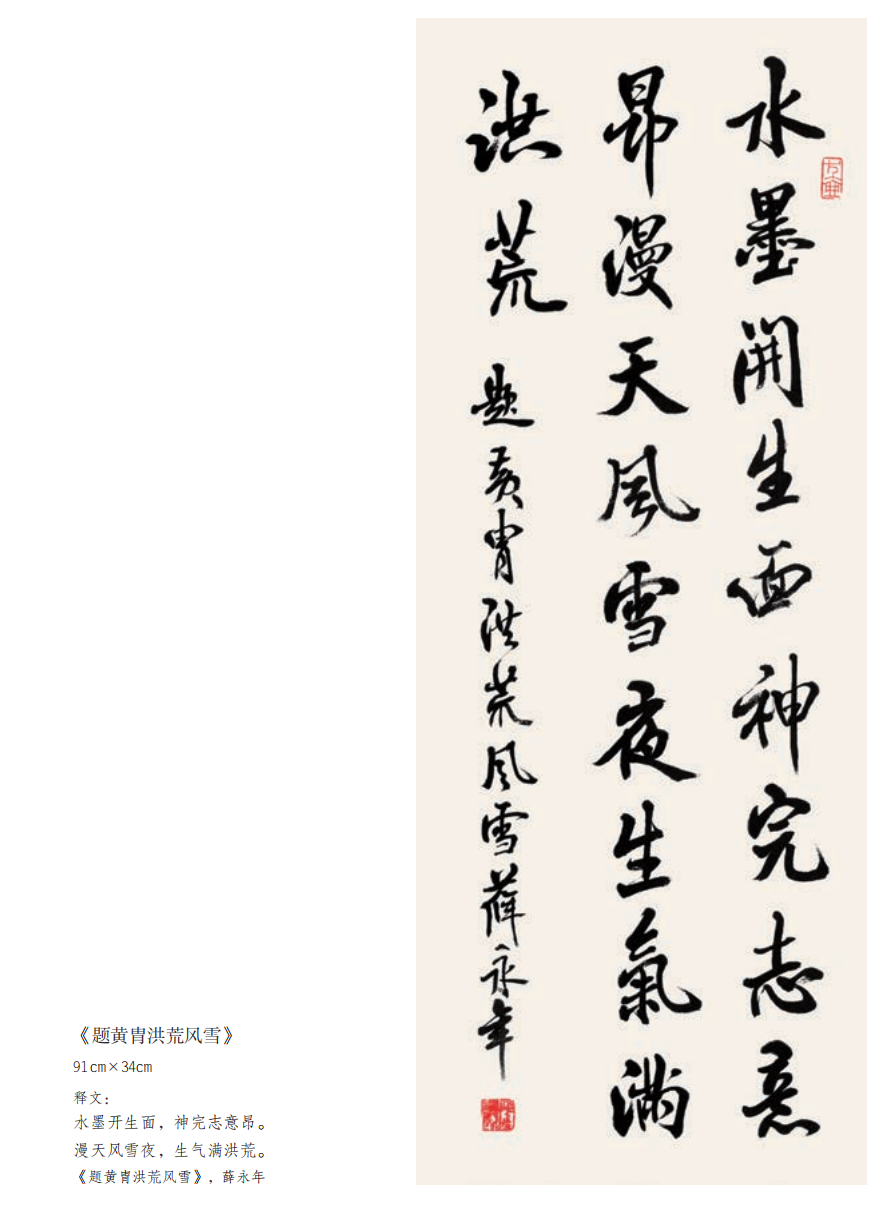 水墨開生面神完志意
昂漫天風雪夜生氣滿
洪荒
题黄胄洪荒风雪薛永年
《题黄胄洪荒风雪》
91cm×34cm
释文：
水墨开生面，神完志意昂。
漫天风雪夜，生气满洪荒。
《题黄胄洪荒风雪》，薛永年